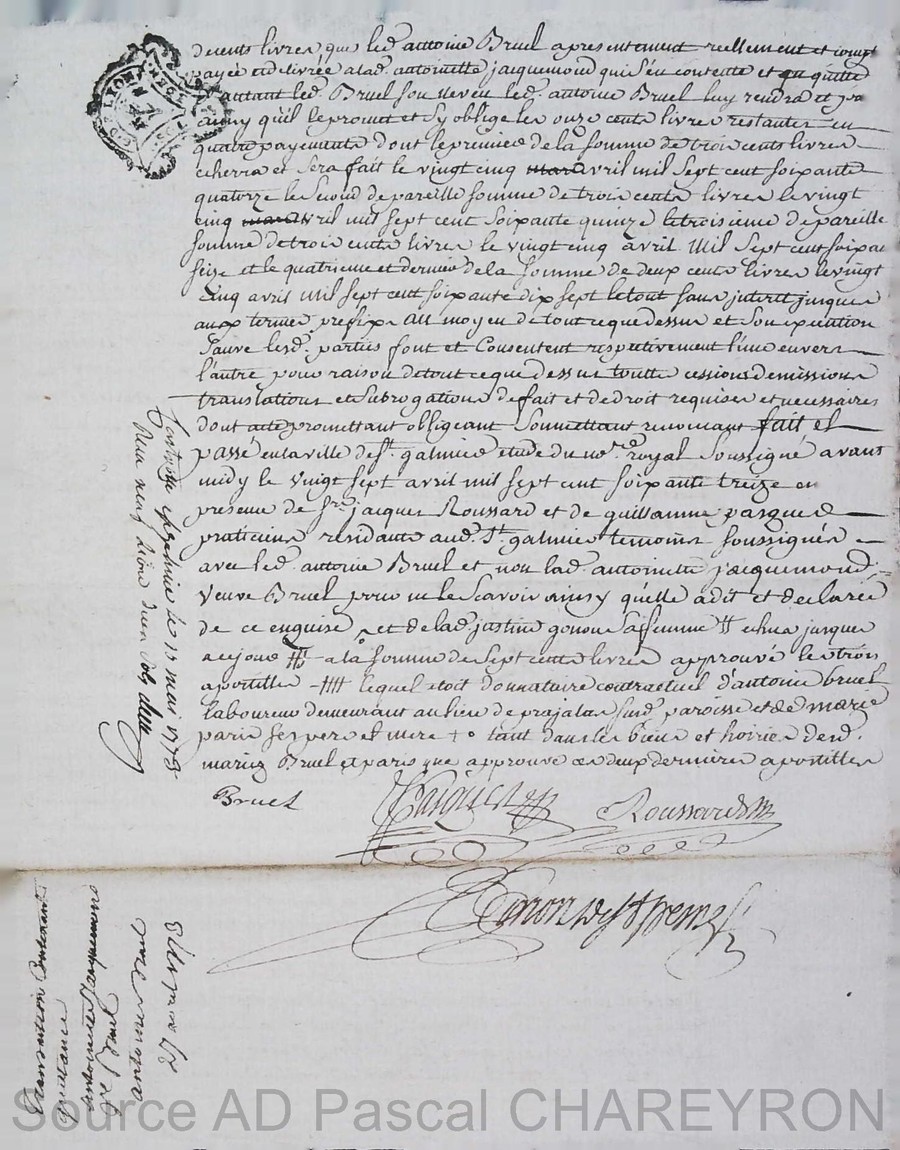 decents livres que led. antoine Bruel apresentement reellement et compt
payée et delivrée alad. antoinette jacquemond qui s'en contente et en quitte
d'autant led. Bruel son neveu led. antoine Bruel luy rendra et pa
ainsy qu'il le promet et s'y oblige les onze cents livres restantes en
quatre payements dont le premier de la somme de trois cents livres
echerra et sera fait le vingt cinq avril mil sept cent soixante
quatorze le second de pareille somme de trois cents livres le vingt
cinq avril mil sept cent soixante quinze le troisieme de pareille
somme de trois cents livres le vingt cinq avril Mil sept cent soixan
seize et le quatrieme et dernier de la somme de deux cents livres le vingt
cinq avril mil sept cent soixante dix sept le tout sans interit jusques
aux termes prefix au moyen de tout ce que dessus et son execution
sauve lesd. parties font et Consentent respectivement l'une envers
l'autre pour raison de tout ce que dessus toutte cessions demissions
translations et subrogations de fait et de droit requises et necessaires
dont acte promettant obligeant Soumettant renonçant fait et
passé en la ville de st. galmier etude du nore. royal soussigné avant
midy le vingt sept avril mil sept cent soixante treize en
presence de sr. jacques Roussard et de guillaume pasquer
praticiens residants aud. St. galmier temoins soussignés
avec led. antoine Bruel et non lad. antoinette jacquemond
veuve Bruel pour ne le scavoir ainsy qu'elle a dit et declarée
de ce enquise et de lad. justine gonon sa femme # echus jusques
ace jour # a la somme de sept cents livres approuvé les trois
apostilles # lequel etoit donnataire contractuel d'antoine bruel
laboureur demeurant au lieu de prajalas susd. paroisse et de marie
paris ses pere et mere + tant dans les biens et hoiries desd.
mariez Bruel et paris que approuvé ces deux dernieres apostilles
Bruel
Pasquer
Roussard
galmier le 13 mai 1773
Reçu neuf livres un sols
Transaction Contenant
quittance
antoinette Jacquemond